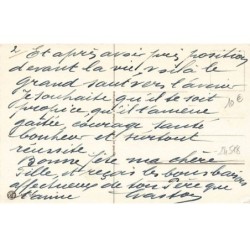 2
Et après avoir pris position
devant la vie, voilà le
grand saut vers l'avenir
je souhaite qu'il te soit
propice qu'il t'amène
gaîté, courage santé
bonheur et surtout
réussite
Bonne fête ma chère
fille, et reçois les bons baisers
affectueux de ton Père que
t'aime Gaston
10 €